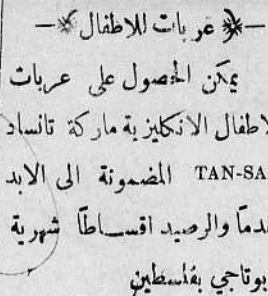 عربات للاطفال
يمكن الحصول على عربات
لاطفال الانكليزية ماركة تانساد
TAN-SA المضمونة الى الابد
دماً والرصيد اقساطاً شهرية
بوتاجي بفلسطين